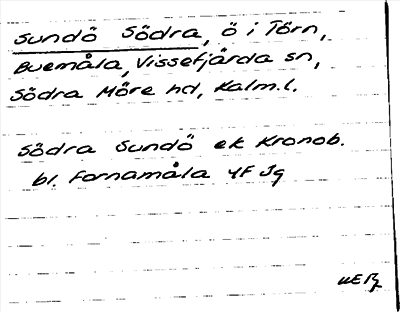 Sundö Södra, ö i Törn,
Buemåla, Vissefjärda sn,
Södra Möre hd, Kalm. l.
Södra Sundö ek Kronob.
bl. Fornamåla 4F Jq